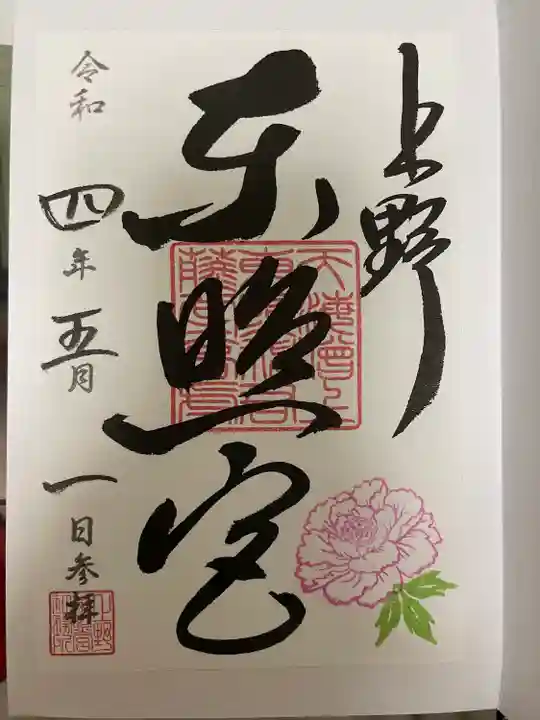 上野
東照宮
令和四年五月一日参拝